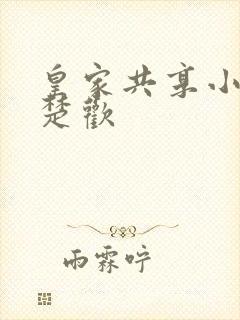 皇家共享小
楚歡
雨霖咛